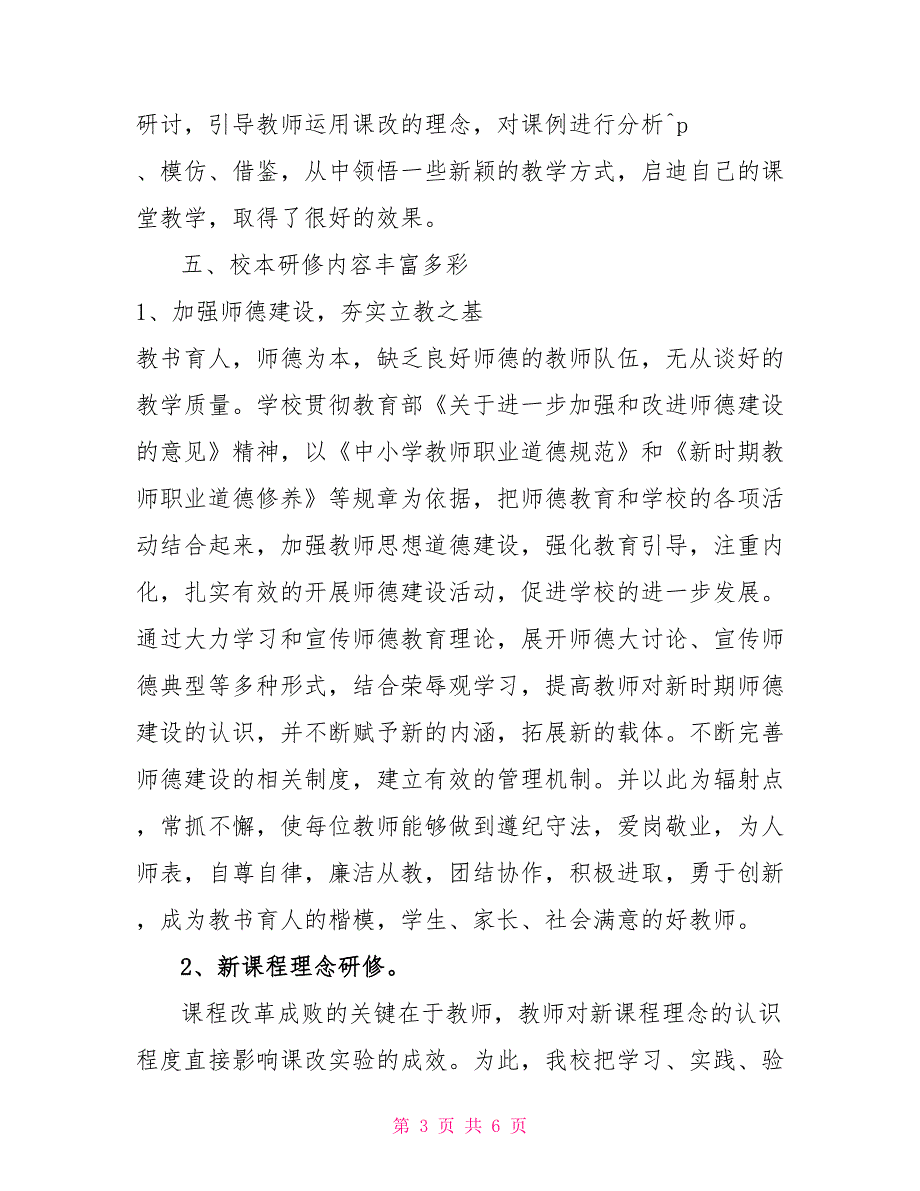 研讨，引导教师运用课改的理念，对课例进行分析^p
、模仿、借鉴，从中领悟一些新颖的教学方式，启迪自己的课
堂教学，取得了很好的效果。
五、校本研修内容丰富多彩
1、加强师德建设，夯实立教之基
教书育人，师德为本，缺乏良好师德的教师队伍，无从谈好的
教学质量。学校贯彻教育部《关于进一步加强和改进师德建设
的意见》精神，以《中小学教师职业道德规范》和《新时期教
师职业道德修养》等规章为依据，把师德教育和学校的各项活
动结合起来，加强教师思想道德建设，强化教育引导，注重内
化，扎实有效的开展师德建设活动，促进学校的进一步发展。
通过大力学习和宣传师德教育理论，展开师德大讨论、宣传师
德典型等多种形式，结合荣辱观学习，提高教师对新时期师德
建设的认识，并不断赋予新的内涵，拓展新的载体。不断完善
师德建设的相关制度，建立有效的管理机制。并以此为辐射点
，常抓不懈，使每位教师能够做到遵纪守法，爱岗敬业，为人
师表，自尊自律，廉洁从教，团结协作，积极进取，勇于创新
，成为教书育人的楷模，学生、家长、社会满意的好教师。
2、新课程理念研修。
课程改革成败的关键在于教师，教师对新课程理念的认识
程度直接影响课改实验的成效。为此，我校把学习、实践、验
第 3 页 共 6 页